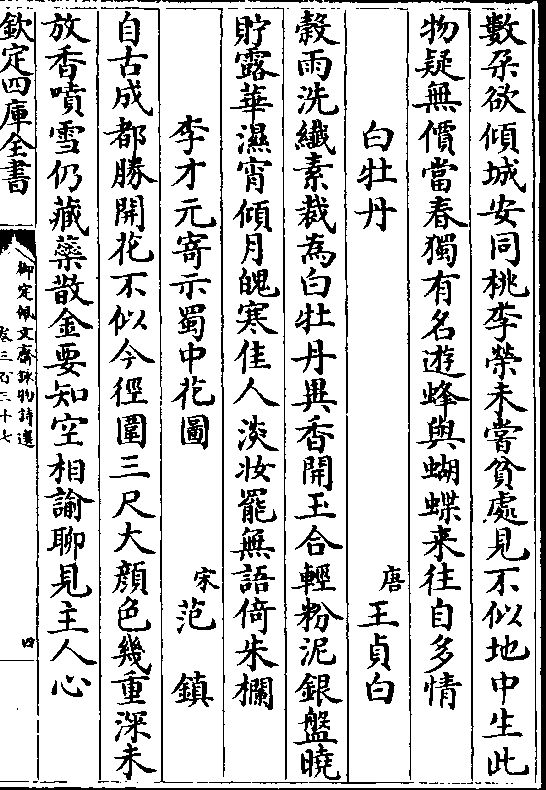 數朶欲傾城安同桃李榮未嘗貧處見不似地中生此
物疑無價當春獨有名遊蜂與蝴蝶来往自多情
白牡丹 唐 王貞白
榖雨洗纖素裁為白牡丹異香開玉合輕粉泥銀盤曉
貯露華濕宵傾月魄寒佳人淡妝罷無語倚朱欄
李才元寄示蜀中花圖 宋 范鎮
自古成都勝開花不似今徑圍三尺大顔色幾重深未
放香噴雪仍藏蘂散金要知空相諭聊見主人心
欽定四庫全書
御定佩文齋詠物詩選
卷三百三十七
四